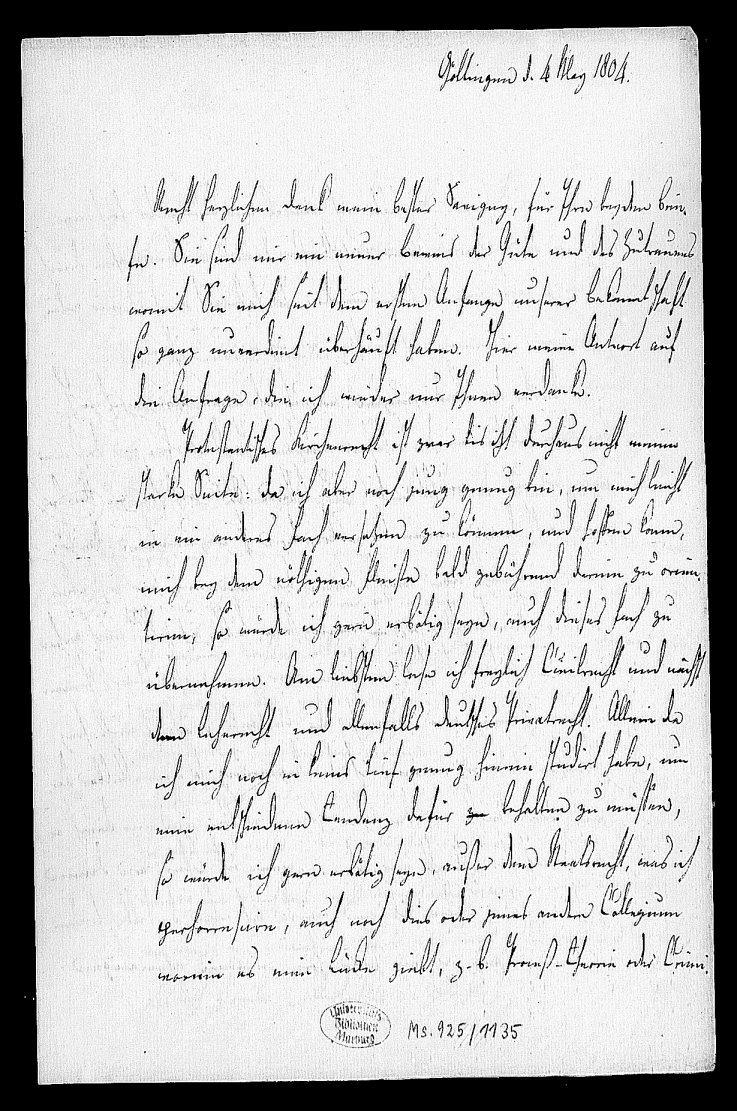 Göttingen d. 4 May 1804.
Recht herzlichen Dank mein bester Savigny, für Ihre beyden Brie-
fe. Sie sind mir ein neuer Beweis der Güte und des Zutrauens
womit Sie mich seit dem ersten Anfange unserer Bekanntschaft
so ganz unverdient überhäuft haben. Hier meine Antwort auf
die Anfrage, die ich wieder nur Ihnen verdanke.
Protestantisches Kirchenrecht ist zwar bis itzt durchaus nicht meine
starke Seite: da ich aber noch jung genug bin, um mich leicht
in ein anderes Fach versetzen zu können, und hoffen kann,
mich bey dem nöthigen Fleiße bald gebührend darin zu orien-
tiren, so würde ich gern erbötig seyn, auch dieses Fach zu
übernehmen. Am liebsten lese ich freylich Civilrecht und nächst
dem Lehnrecht und allenfalls deutsches Privatrecht. Allein da
ich mich noch in keins tief genug hinein studirt habe, um
eine entschiedene Tendenz dafür behalten zu müssen,
so würde ich gern erbötig seyn, außer dem Staatsrecht, was ich
perhorrescire, auch noch dies oder jenes andere Collegium
worin es eine Lücke giebt, z. b. Proceß-Theorie oder Crimi-
Universitäts
Bibliothek
Marburg
Ms. 925/1135